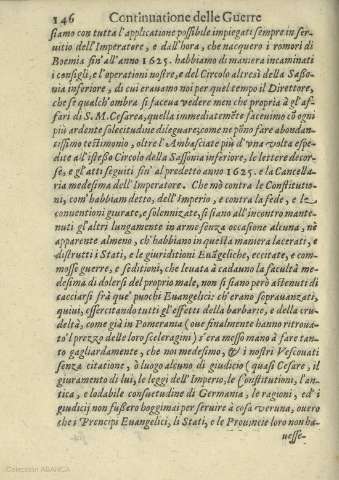 146 Continuatione delle Guerre
siamo con tutta l'applicatione possibile impiegati sempre in ser-
uitio dell'Imperatore, e dall'hora, che nacquero i romori di
Boemia sin'all'anno 1625. habbiamo di maniera incaminati
i consigli, e l'operationi nostre, e del Circolo altresì della Saßo-
nia inferiore, di cui erauamo noi per quel tempo il Direttore,
che se qualch'ombra si faceua vedere men che propria à gl'af-
fari di S. M. Cesarea, quella immediatemẽte faceuimo cõ ogni
più ardente solecitudine dileguare; come ne põno fare abondan-
tissimo testimonio, oltre l'Ambasciate più d'vna volta espe-
dite all'istesso Circolo della Sassonia inferiore, le lettere decor-
se, e gl'atti seguiti sin'al predetto anno 1625. e la Cancella-
ria medesima dell'Imperatore. Che mò contra le Constitutio-
ni, com'habbiam detto, dell'Imperio, e contra la fede, e le
conuentioni giurate, e solennizate, si siano all'incontro mante-
nuti gl'altri lungamente in arme senza occasione alcuna, nè
apparente almeno, ch'habbiano in quella maniera lacerati, e
distrutti i Stati, e le giuriditioni Euãgeliche, eccitate, e com-
mosse guerre, e seditioni, che leuata à cadauno la facultà me-
desima di dolersi del proprio male, non si siano però astenuti di
cacciarsi frà que' puochi Euangelici ch'erano soprauanzati,
quiui, essercitando tutti gl'effetti della barbarie, e della cru-
deltà, come già in Pomerania (oue finalmente hanno ritroua-
to'l prezzo delle loro sceleragini) s'era messo mano à fare tan-
to gagliardamente, che noi medesimo, & i nostri Vescouati
senza citatione, ò luogo alcuno di giudicio (quasi Cesare, il
giuramento di lui, le leggi dell'Imperio, le Constitutioni, l'an-
tica, e lodabile consuetudine di Germania, le ragioni, ed i
giudicij non fußero hoggimai per seruire à cosa veruna, ouero
che i Prencipi Euangelici, li Stati, e le Prouincie loro non ha-
uesse-
Colección ABANCA